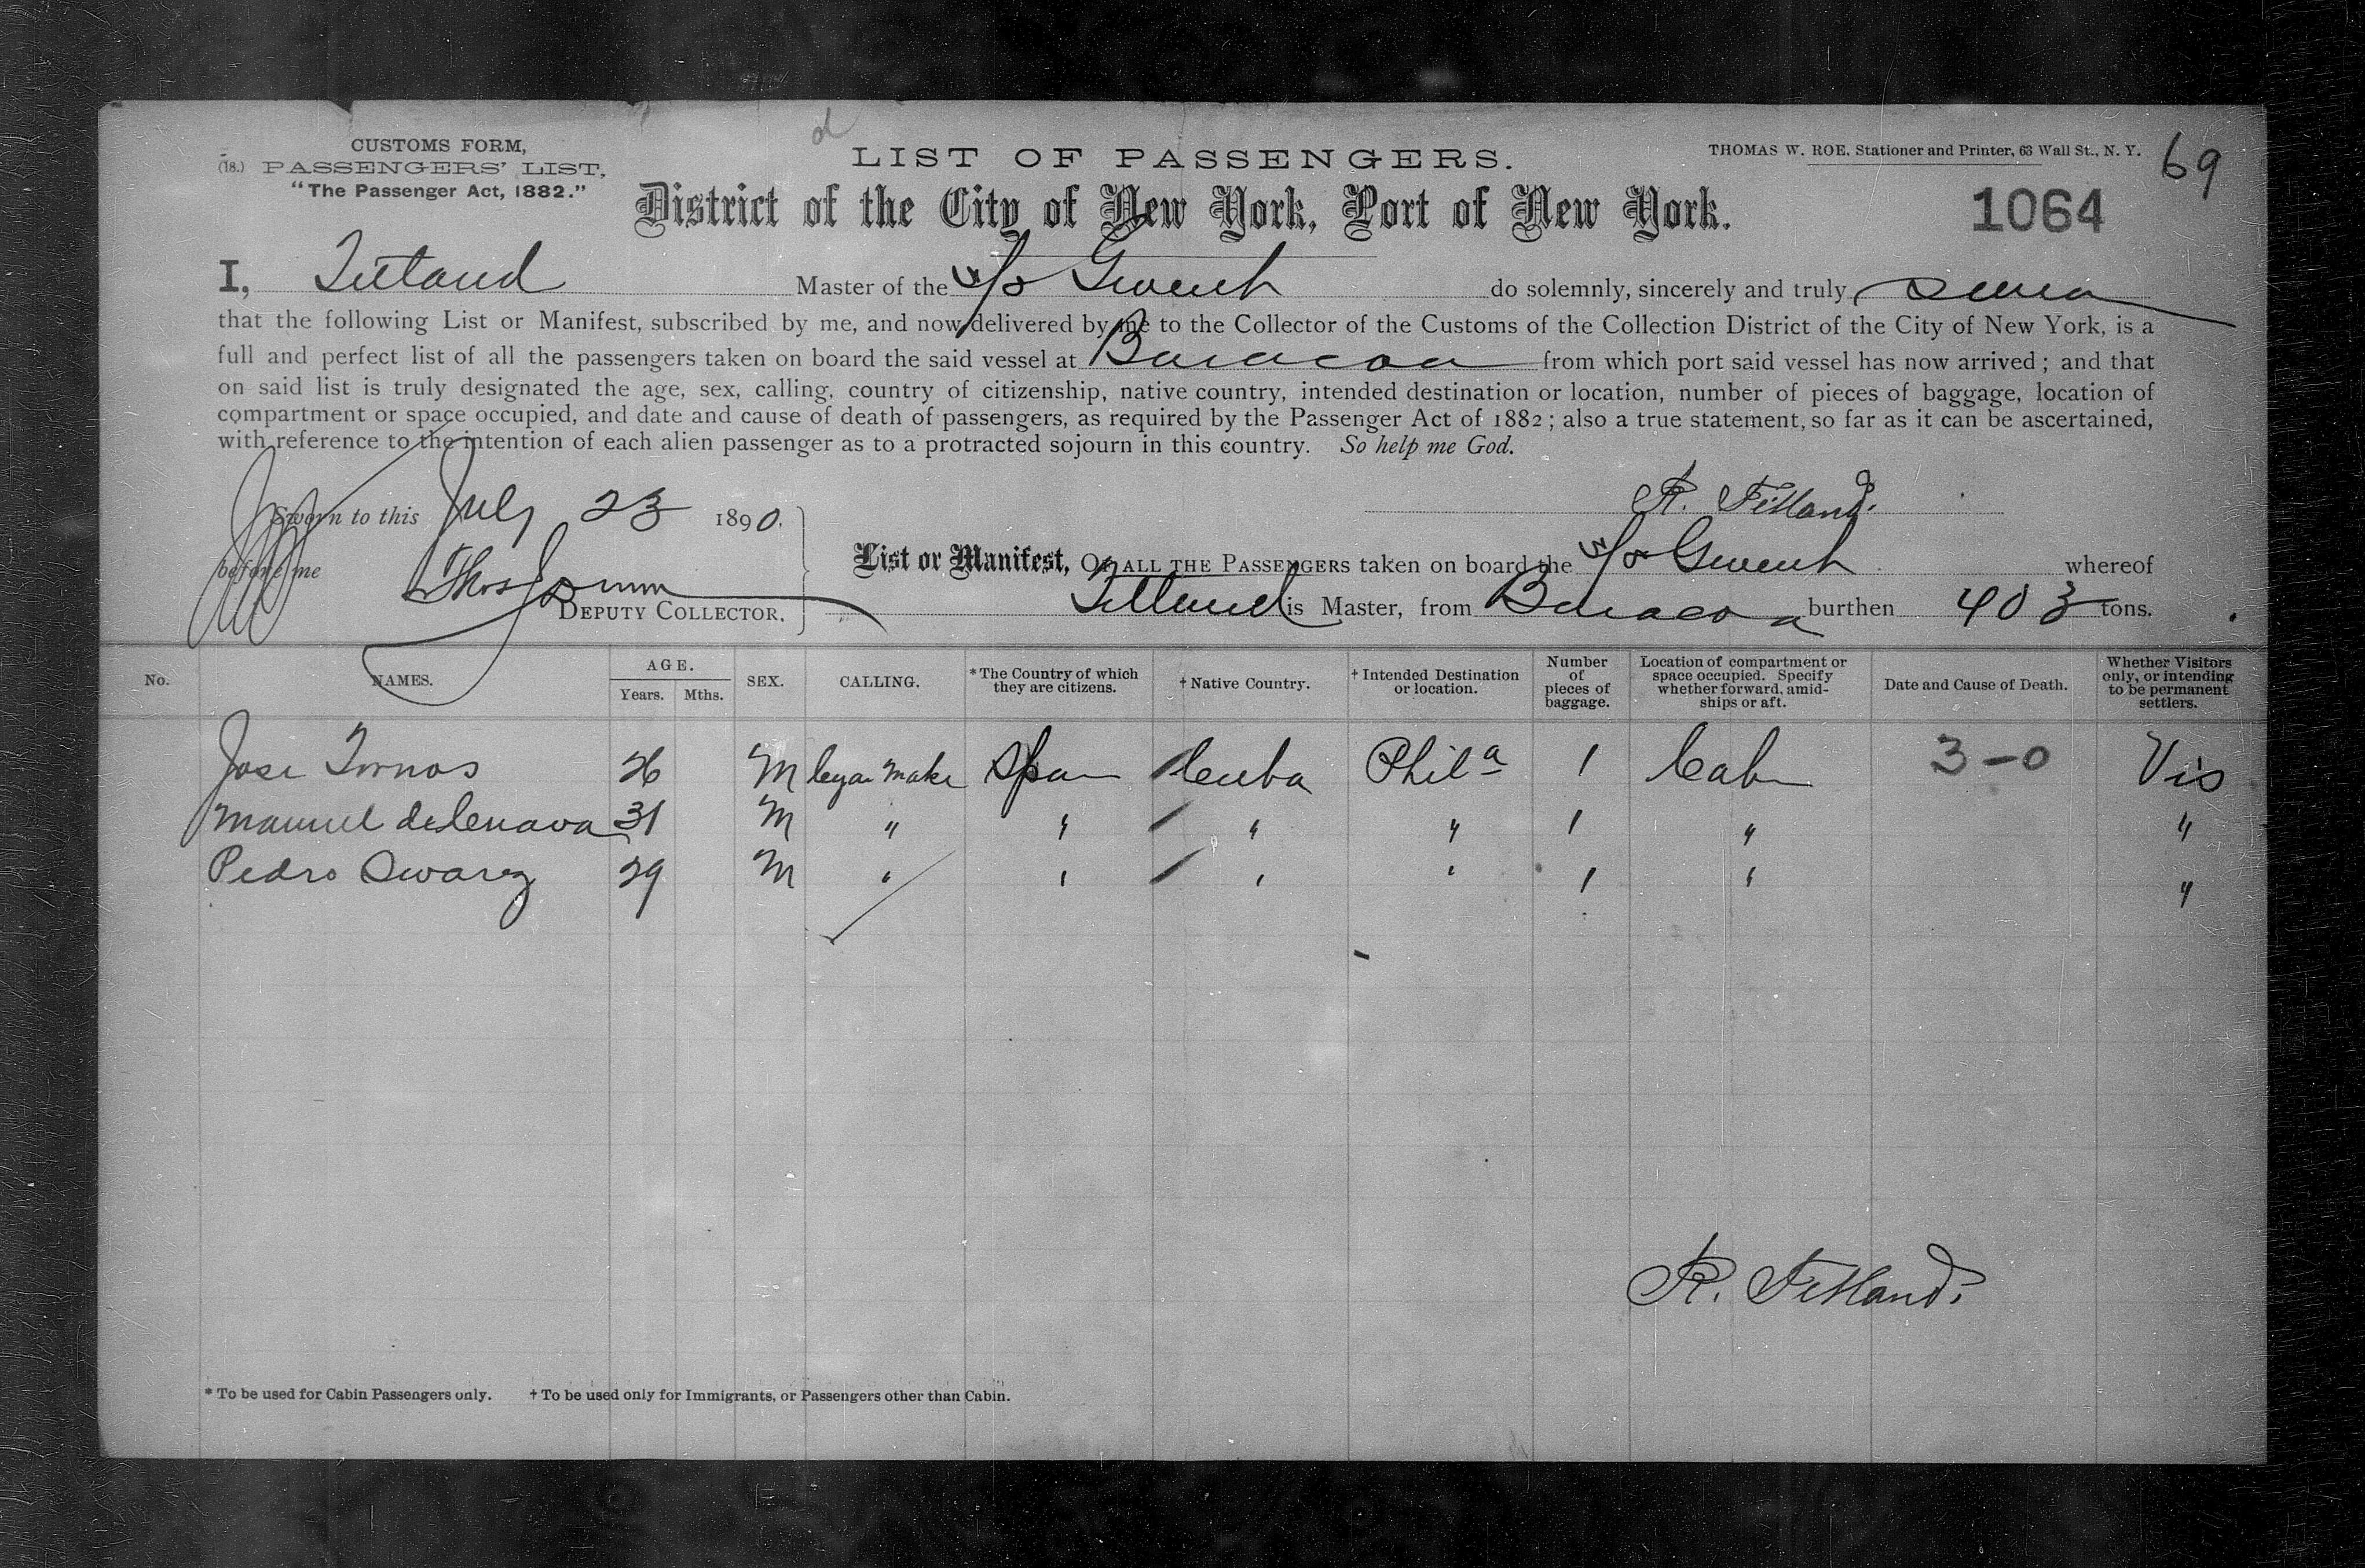 CUSTOMS FORM,
(18.) PASSENGERS' LIST,
"The Passenger Act, 1882."
LIST OF PASSENGERS.
THOMAS W. ROE, Stationer and Printer, 63 Wall St., N. Y.
69
District of the City of New York, Port of New York.
1064
I, Master of the S/S Gwent do solemnly, sincerely and truly swear
that the following List or Manifest, subscribed by me, and now delivered by me to the Collector of the Customs of the Collection District of the City of New York, is a
full and perfect list of all the passengers taken on board the said vessel at Baracoa from which port said vessel has now arrived; and that
on said list is truly designated the age, sex, calling, country of citizenship, native country, intended destination or location, number of pieces of baggage, location of
compartment or space occupied, and date and cause of death of passengers, as required by the Passenger Act of 1882; also a true statement, so far as it can be ascertained,
with reference to the intention of each alien passenger as to a protracted sojourn in this country. So help me God.
R. Fitland.
Sworn to this July 23 1890.
before me Thos
DEPUTY COLLECTOR.
List or Manifest, OF ALL THE PASSENGERS taken on board the S/S Gwent whereof
is Master, from Baracoa burthen 403 tons.
No. NAMES. AGE. Years. Mths. SEX. CALLING. *The Country of which they are citizens. †Native Country. †Intended Destination or location. Number of pieces of baggage. Location of compartment or space occupied. Specify whether forward, amidships or aft. Date and Cause of Death. Whether Visitors only, or intending to be permanent settlers.
Jose Tornos 26 M Cigar Make Spa Cuba Phila 1 Cab 3-0 Vis
Manuel 31 M " " " " 1 " "
Pedro Swarez 29 M " " " " 1 " "
R. Fitland.
* To be used for Cabin Passengers only. † To be used only for Immigrants, or Passengers other than Cabin.